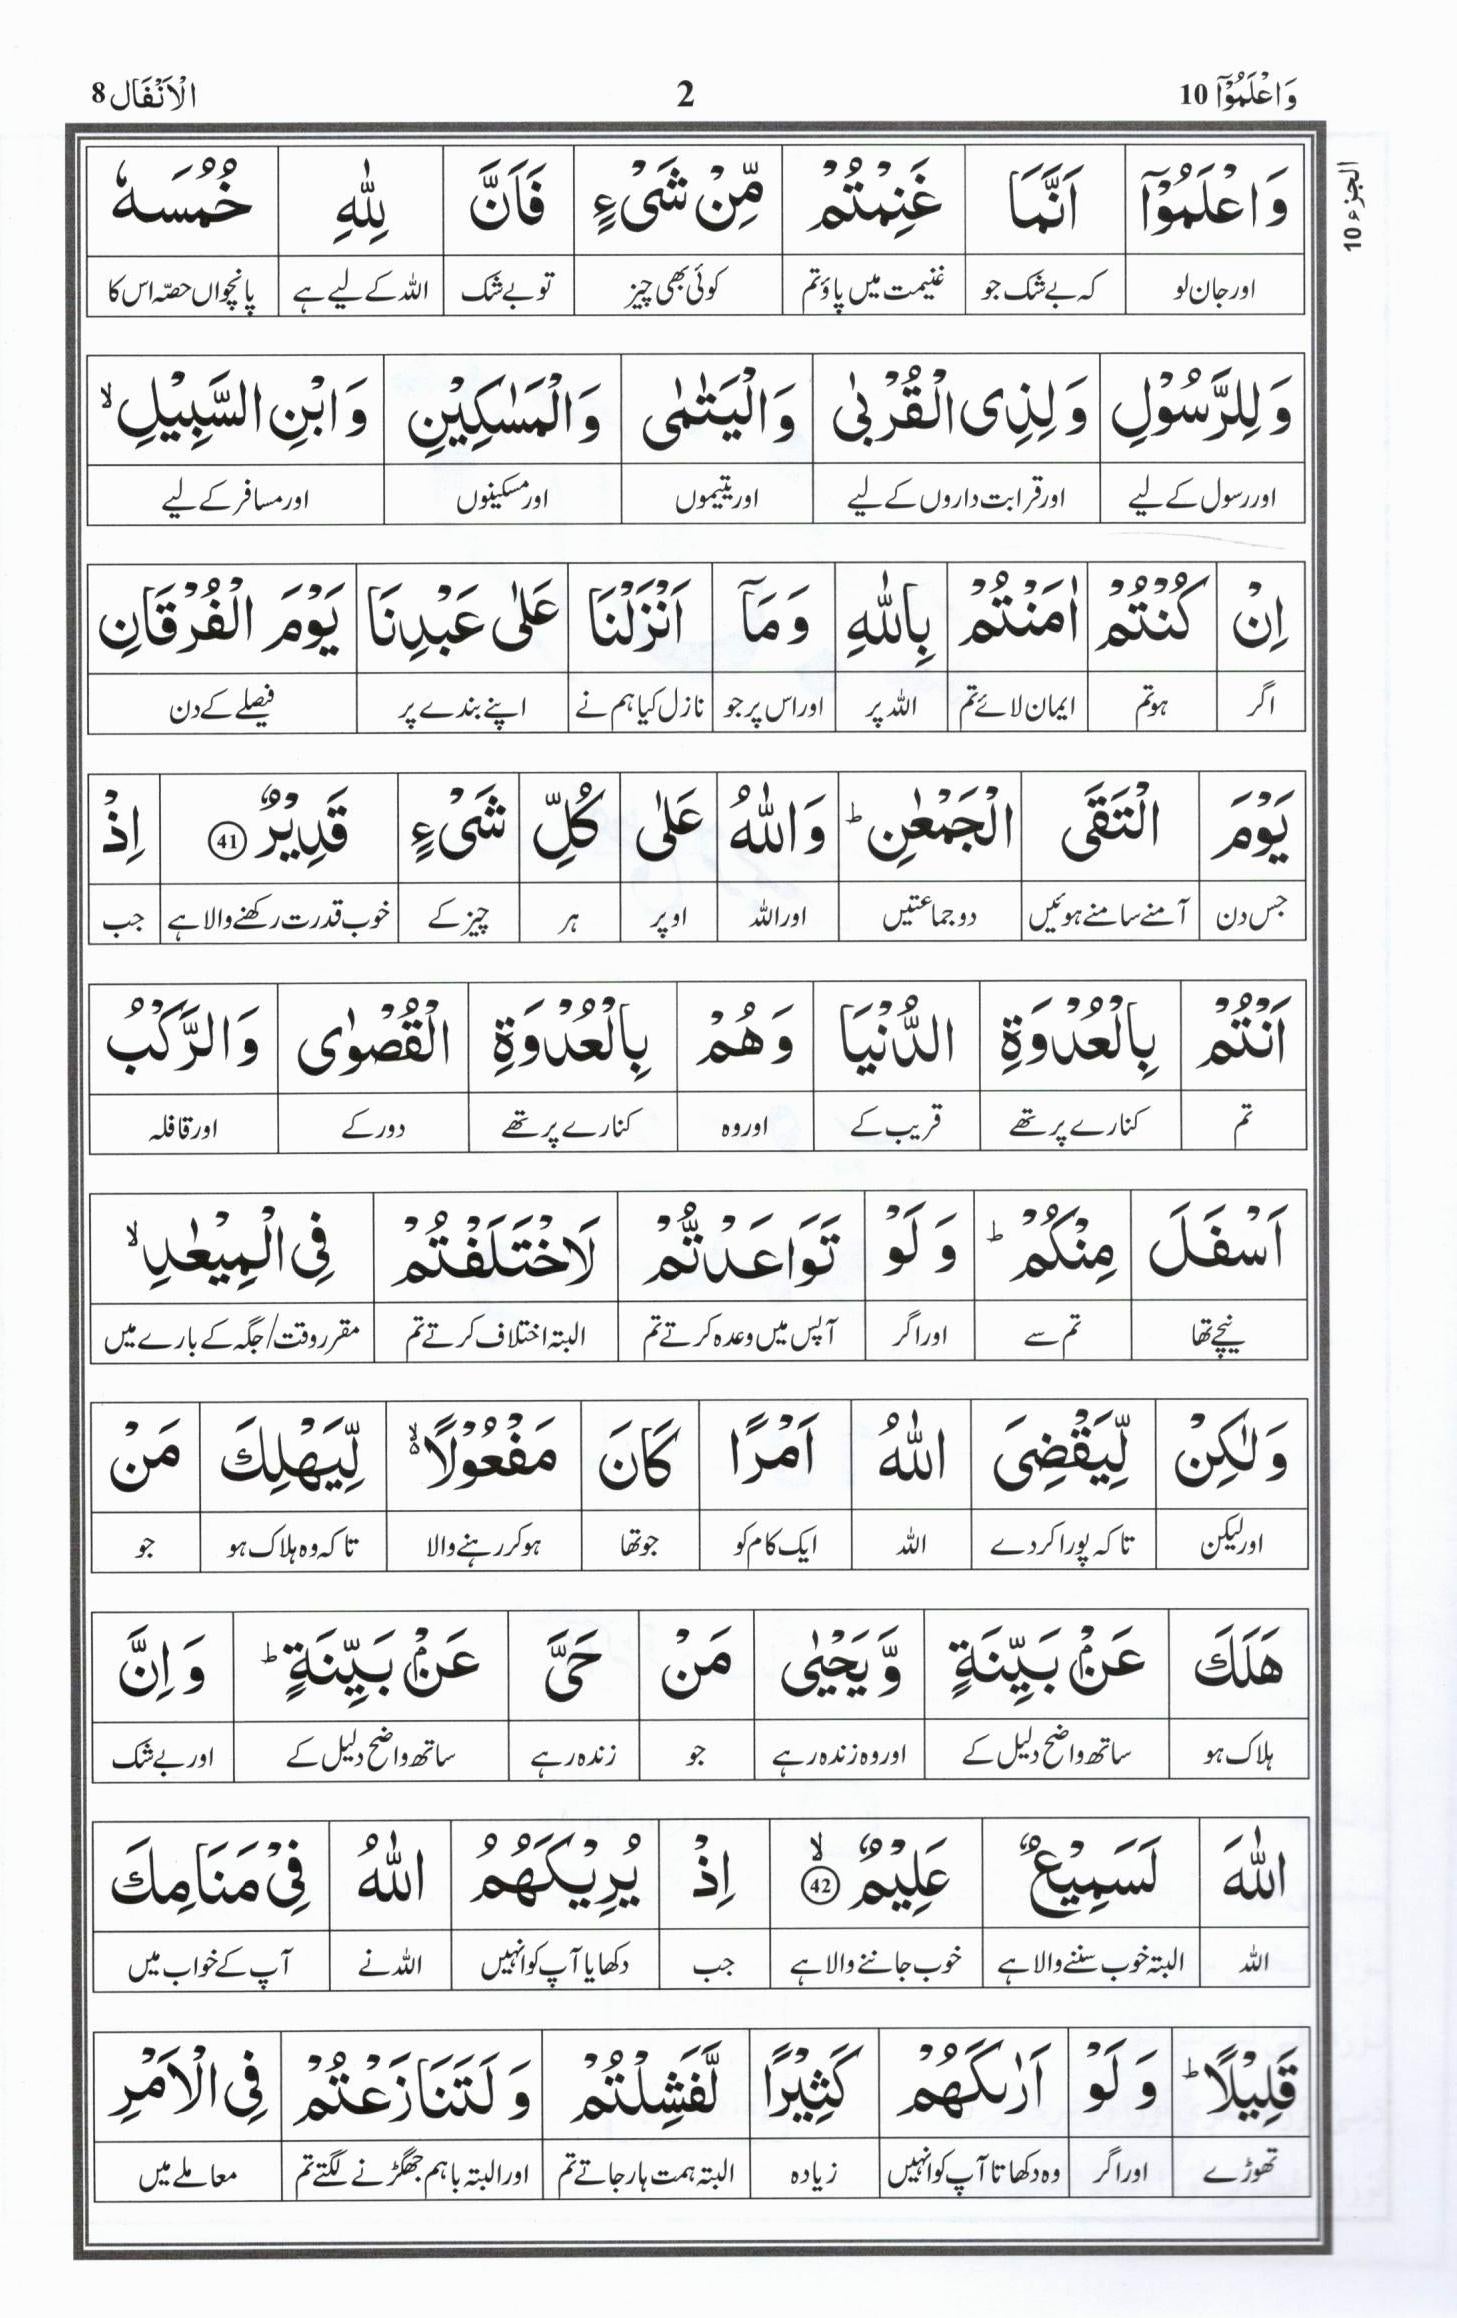 وَاعْلَمُوْٓا 10 2 الْاَنْفَال 8
الجزء 10
وَاعْلَمُوْٓا اَنَّمَا غَنِمْتُمْ مِّنْ شَیْءٍ فَاَنَّ لِلّٰهِ خُمُسَهٗ
اور جان لو کہ بے شک جو غنیمت میں پاؤ تم کوئی بھی چیز تو بے شک اللہ کے لیے ہے پانچواں حصّہ اس کا
وَلِلرَّسُوْلِ وَلِذِی الْقُرْبٰی وَالْیَتٰمٰی وَالْمَسٰكِیْنِ وَابْنِ السَّبِیْلِ ۙ
اور رسول کے لیے اور قرابت داروں کے لیے اور یتیموں اور مسکینوں اور مسافر کے لیے
اِنْ كُنْتُمْ اٰمَنْتُمْ بِاللّٰهِ وَمَآ اَنْزَلْنَا عَلٰی عَبْدِنَا یَوْمَ الْفُرْقَانِ
اگر ہو تم ایمان لائے تم اللہ پر اور اس پر جو نازل کیا ہم نے اپنے بندے پر فیصلے کے دن
یَوْمَ الْتَقَی الْجَمْعٰنِ ؕ وَاللّٰهُ عَلٰی كُلِّ شَیْءٍ قَدِیْرٌ 41 اِذْ
جس دن آمنے سامنے ہوئیں دو جماعتیں اور اللہ اوپر ہر چیز کے خوب قدرت رکھنے والا ہے جب
اَنْتُمْ بِالْعُدْوَةِ الدُّنْیَا وَهُمْ بِالْعُدْوَةِ الْقُصْوٰی وَالرَّكْبُ
تم کنارے پر تھے قریب کے اور وہ کنارے پر تھے دور کے اور قافلہ
اَسْفَلَ مِنْكُمْ ؕ وَلَوْ تَوَاعَدْتُّمْ لَاخْتَلَفْتُمْ فِی الْمِیْعٰدِ ۙ
نیچے تھا تم سے اور اگر آپس میں وعدہ کرتے تم البتہ اختلاف کرتے تم مقرر وقت/جگہ کے بارے میں
وَلٰكِنْ لِّیَقْضِیَ اللّٰهُ اَمْرًا كَانَ مَفْعُوْلًا ۙ۬ لِّیَهْلِكَ مَنْ
اور لیکن تاکہ پورا کر دے اللہ ایک کام کو جو تھا ہو کر رہنے والا تاکہ وہ ہلاک ہو جو
هَلَكَ عَنْۢ بَیِّنَةٍ وَّیَحْیٰی مَنْ حَیَّ عَنْۢ بَیِّنَةٍ ؕ وَاِنَّ
ہلاک ہو ساتھ واضح دلیل کے اور وہ زندہ رہے جو زندہ رہے ساتھ واضح دلیل کے اور بے شک
اللّٰهَ لَسَمِیْعٌ عَلِیْمٌ ۙ 42 اِذْ یُرِیْكَهُمُ اللّٰهُ فِیْ مَنَامِكَ
اللہ البتہ خوب سننے والا ہے خوب جاننے والا ہے جب دکھایا آپ کو انہیں اللہ نے آپ کے خواب میں
قَلِیْلًا ؕ وَلَوْ اَرٰىكَهُمْ كَثِیْرًا لَّفَشِلْتُمْ وَلَتَنَازَعْتُمْ فِی الْاَمْرِ
تھوڑے اور اگر وہ دکھاتا آپ کو انہیں زیادہ البتہ ہمت ہار جاتے تم اور البتہ باہم جھگڑنے لگتے تم معاملے میں